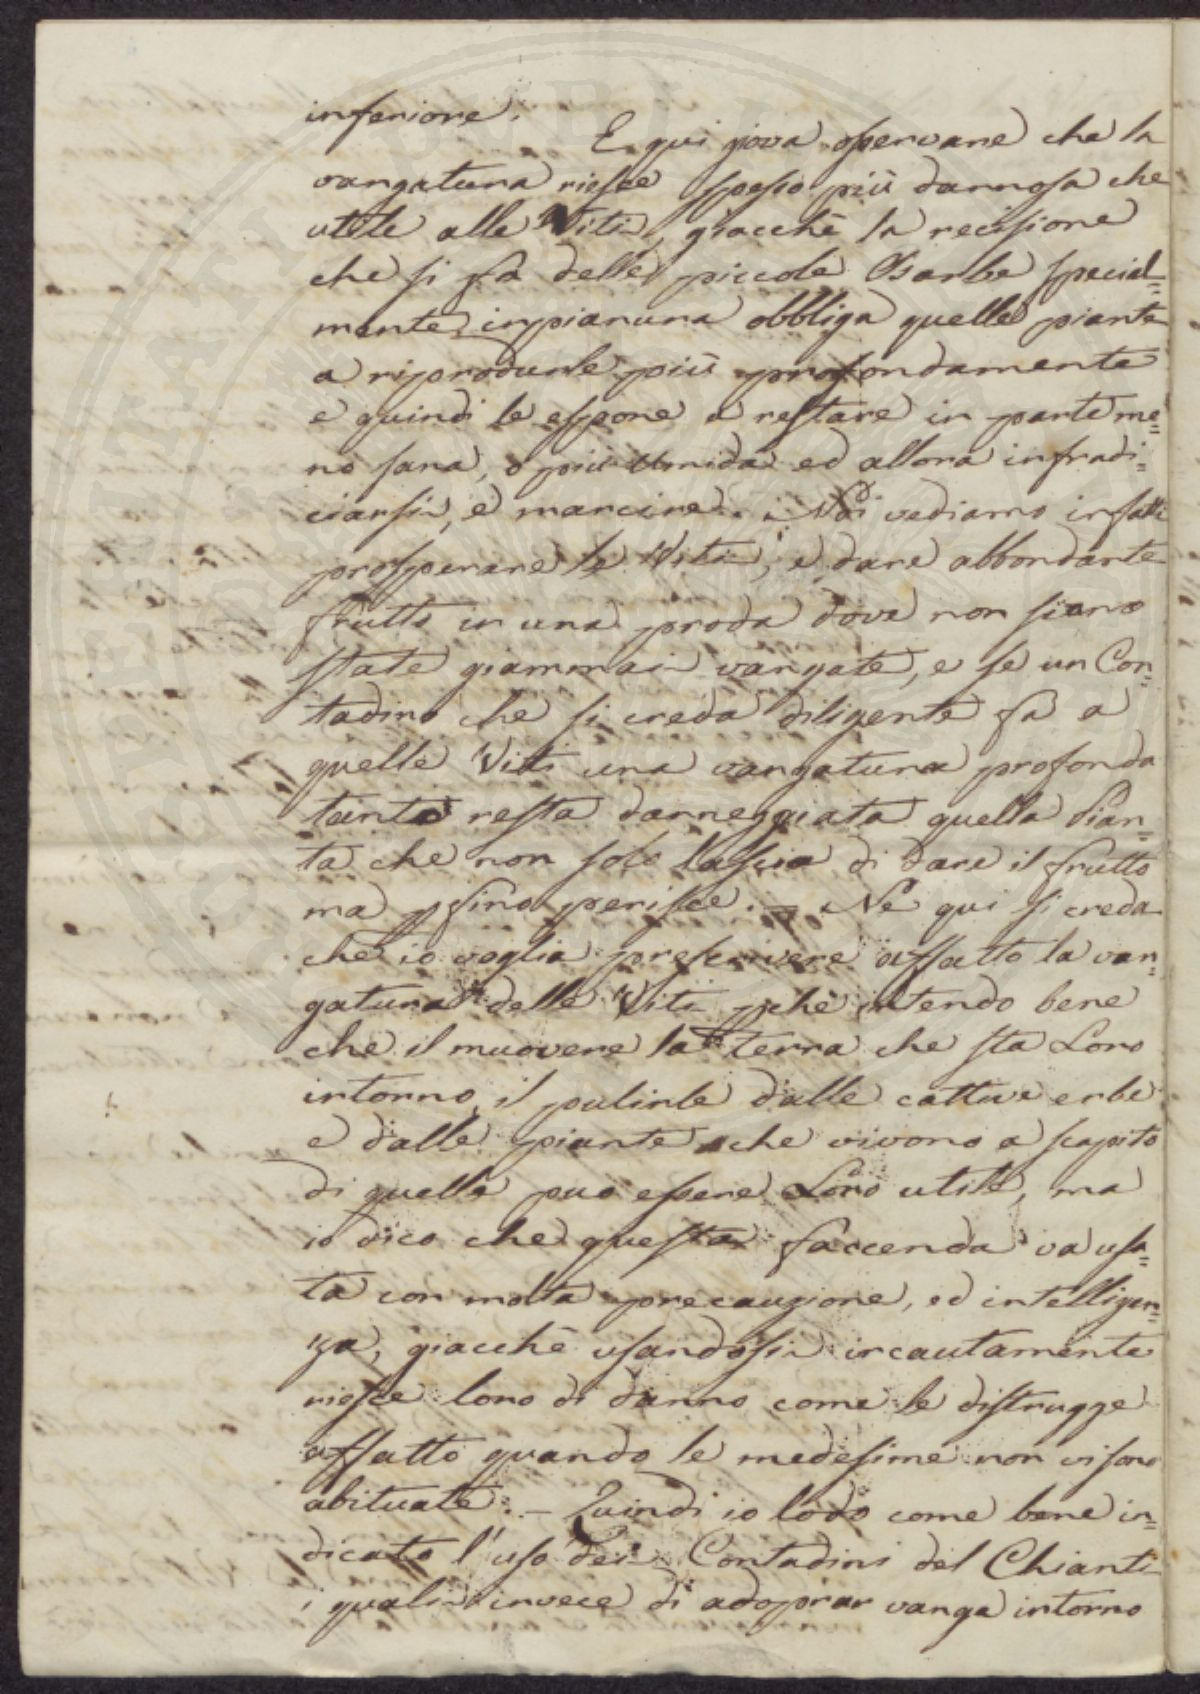 inferiore.
E qui giova osservare che la
vangatura riesce spesso più dannosa che
utile alle Viti, giacchè la recisione
che si fà delle piccole Barbe special=
mente in pianura obbliga quelle piante
a riprodurle più profondamente
e quindi le espone a restare in parte me=
no sana, o più umida ed allora infradi=
ciarsi, e marcire. Noi vediamo infatti
prosperare le Viti, e dare abbondante
frutto in una proda dove non siano
state giammai vangate, e se un Con=
tadino che si creda diligente fà a
quelle Viti una vangatura profonda
tanto resta danneggiata quella Pian=
ta che non solo lascia di dare il frutto
ma pfino perisce. - Nè qui si creda
che io voglia proscrivere affatto la van=
gatura delle Viti pchè intendo bene
che il muovere la terra che sta Loro
intorno, il pulirle dalle cattive erbe
e dalle piante che vivono a scapito
di quelle può essere Loro utile, ma
io dico che questa faccenda va usa=
ta con molta precauzione, ed intelligen=
za, giacchè usandosi incautamente
riesce loro di danno come le distrugge
affatto quando le medesime non vi sono
abituate. - Quindi io lodo come bene in=
dicato l'uso dei Contadini del Chianti
i quali invece di adoprar vanga intorno